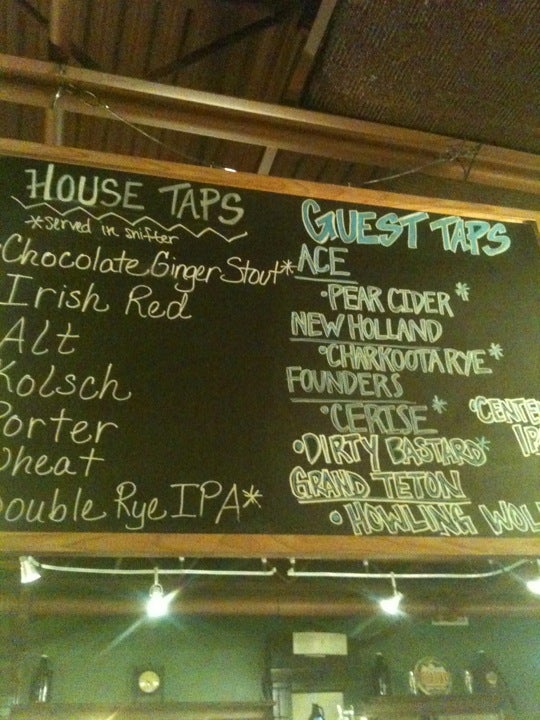 HOUSE TAPS
*served in snifter
Chocolate Ginger Stout*
Irish Red
Alt
Kolsch
Porter
Wheat
Double Rye IPA*
GUEST TAPS
ACE
•PEAR CIDER*
NEW HOLLAND
•CHARKOOTA RYE*
FOUNDERS
•CERISE* •CENTE
IPA
•DIRTY BASTARD*
GRAND TETON
•HOWLING WOL